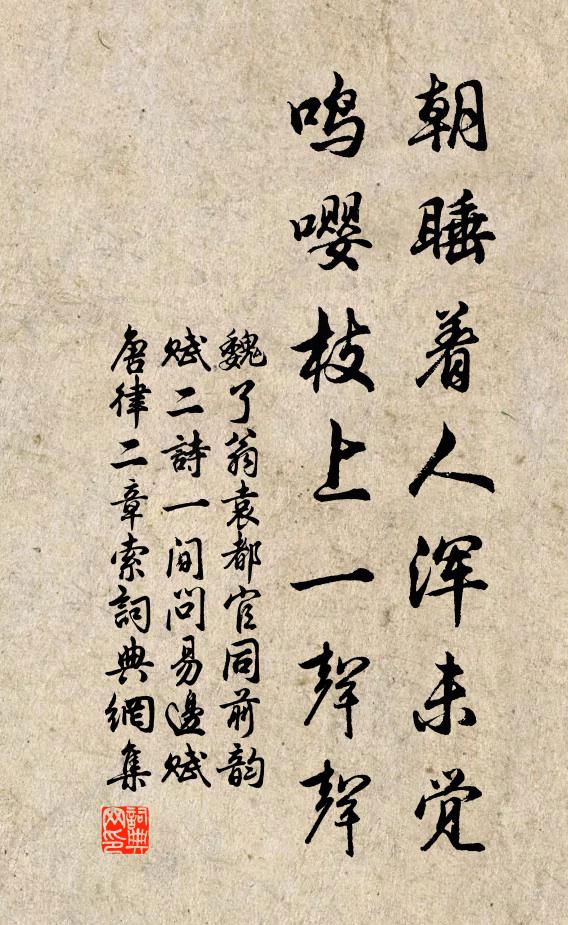 朝睡着人浑未觉
鸣嘤枝上一聲聲
魏了翁袁都官同前韵
赋二詩一间问易邊赋
唐律二章索詞典網集
詞典
网印